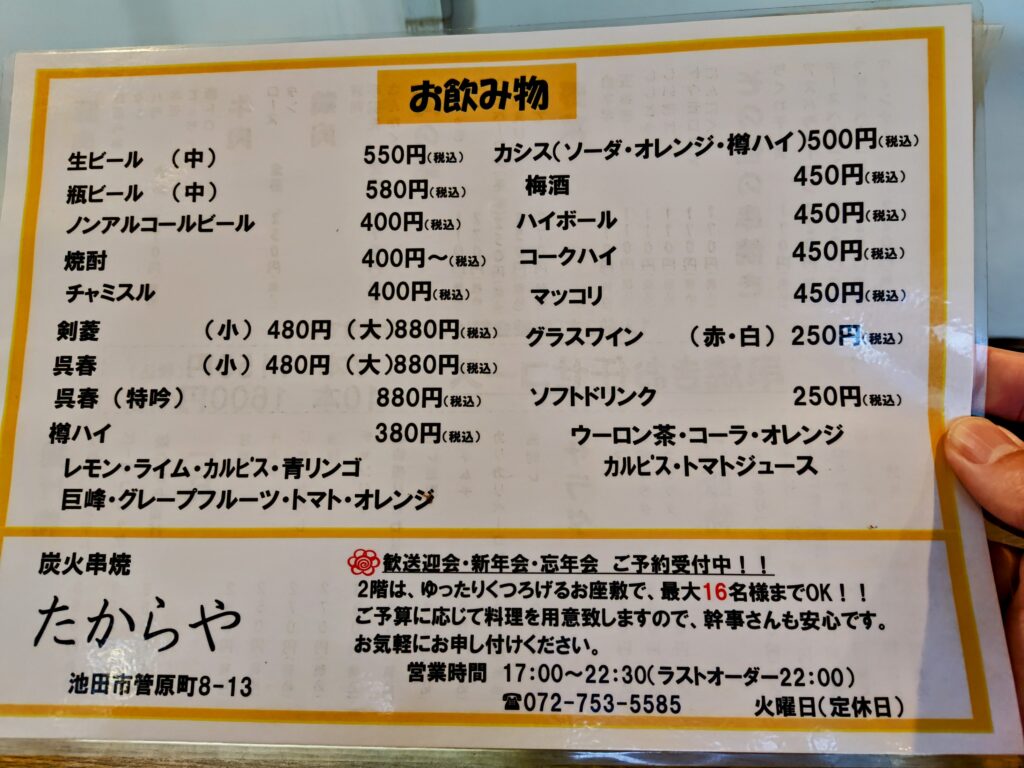 お飲み物
生ビール （中） 550円(税込)
瓶ビール （中） 580円(税込)
ノンアルコールビール 400円(税込)
焼酎 400円～(税込)
チャミスル 400円(税込)
剣菱 （小） 480円 （大）880円(税込)
呉春 （小） 480円 （大）880円(税込)
呉春 （特吟） 880円(税込)
樽ハイ 380円(税込)
レモン・ライム・カルピス・青リンゴ
巨峰・グレープフルーツ・トマト・オレンジ
カシス(ソーダ・オレンジ・樽ハイ)500円(税込)
梅酒 450円(税込)
ハイボール 450円(税込)
コークハイ 450円(税込)
マッコリ 450円(税込)
グラスワイン （赤・白） 250円(税込)
ソフトドリンク 250円(税込)
ウーロン茶・コーラ・オレンジ
カルピス・トマトジュース
炭火串焼
たからや
池田市菅原町8-13
歓送迎会・新年会・忘年会 ご予約受付中！！
2階は、ゆったりくつろげるお座敷で、最大16名様までOK！！
ご予算に応じて料理を用意致しますので、幹事さんも安心です。
お気軽にお申し付けください。
営業時間 17:00～22:30(ラストオーダー22:00)
☎072-753-5585 火曜日(定休日)